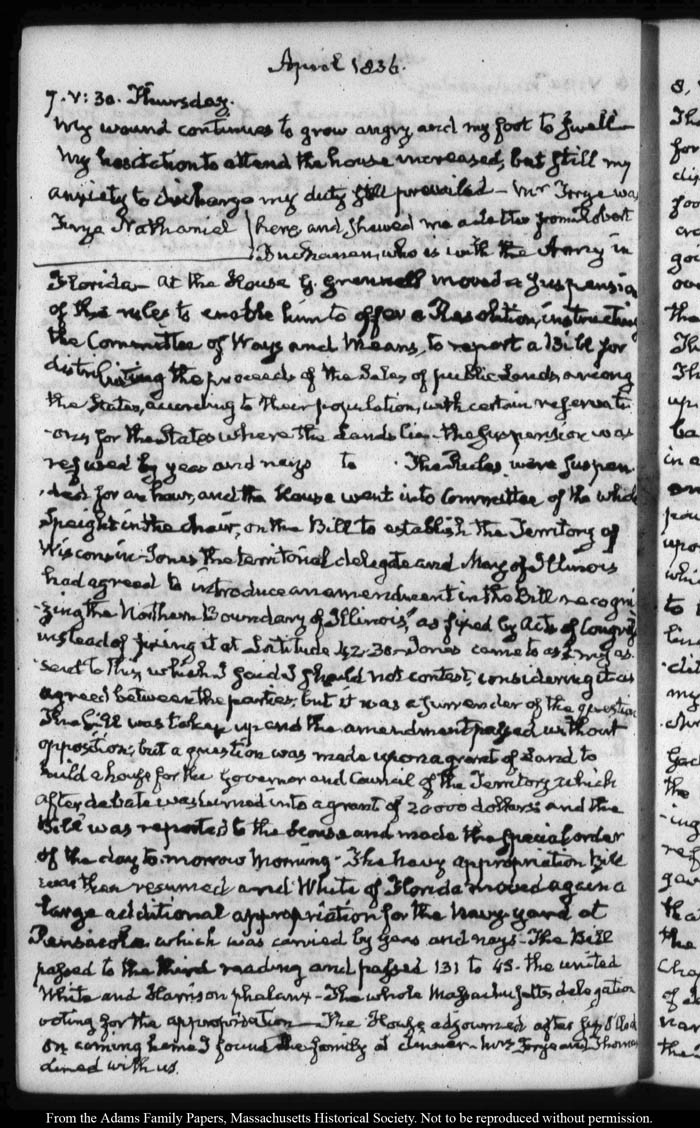 April 1836.
7. V: 30. Thursday.
My wound continues to grow angry and my foot to swell
My hesitation to attend the house increased, but still my
anxiety to discharge my duty still prevailed — Mr Forye was
Forye Nathaniel } here, and shewed me a letter from Robert
Buchanan, who is with the Army in
Florida — At the House G. Grennell moved a suspension
of the rules to enable him to offer a Resolution, instructing
the Committee of Ways and Means, to report a Bill for
distributing the proceeds of the Sales of public Lands among
the States, according to their population, with certain reservati
-ons for the States where the Lands lie — the suspension was
refused by yeas and nays to . The Rules were suspen
-ded for an hour, and the House went into Committee of the whole
Speight in the chair, on the Bill to establish the Territory of
Wisconsin — Jones the territorial delegate and May of Illinois
had agreed to introduce an amendment in the Bill recogni
-zing the Northern Boundary of Illinois, "as fixed by Acts of Congress
instead of fixing it at Latitude 42. 30 — Jones came to ask my as
-sent to this, which I said I should not contest, considering it as
agreed between the parties, but it was a surrender of the question
The Bill was taken up and the amendment passed without
opposition; but a question was made upon a grant of Land to
build a house for the Governor and Council of the Territory which
after debate was turned into a grant of 20000 dollars: and the
Bill was reported to the House and made the special order
of the day to-morrow Morning — The Navy appropriation Bill
was then resumed and White of Florida moved again a
large additional appropriation for the Navy-yard at
Pensacola, which was carried by yeas and nays — The Bill
passed to the third reading and passed 131 to 45 — the united
White and Harrison phalanx — The whole Massachusetts delegation
voting for the appropriation — The House adjourned after six o'clock
On coming home I found the family at dinner — Mrs Forye and Thomas
dined with us.
From the Adams Family Papers, Massachusetts Historical Society. Not to be reproduced without permission.